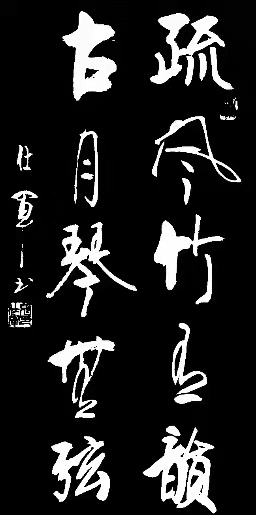 疏风竹有韻
古月琴無弦